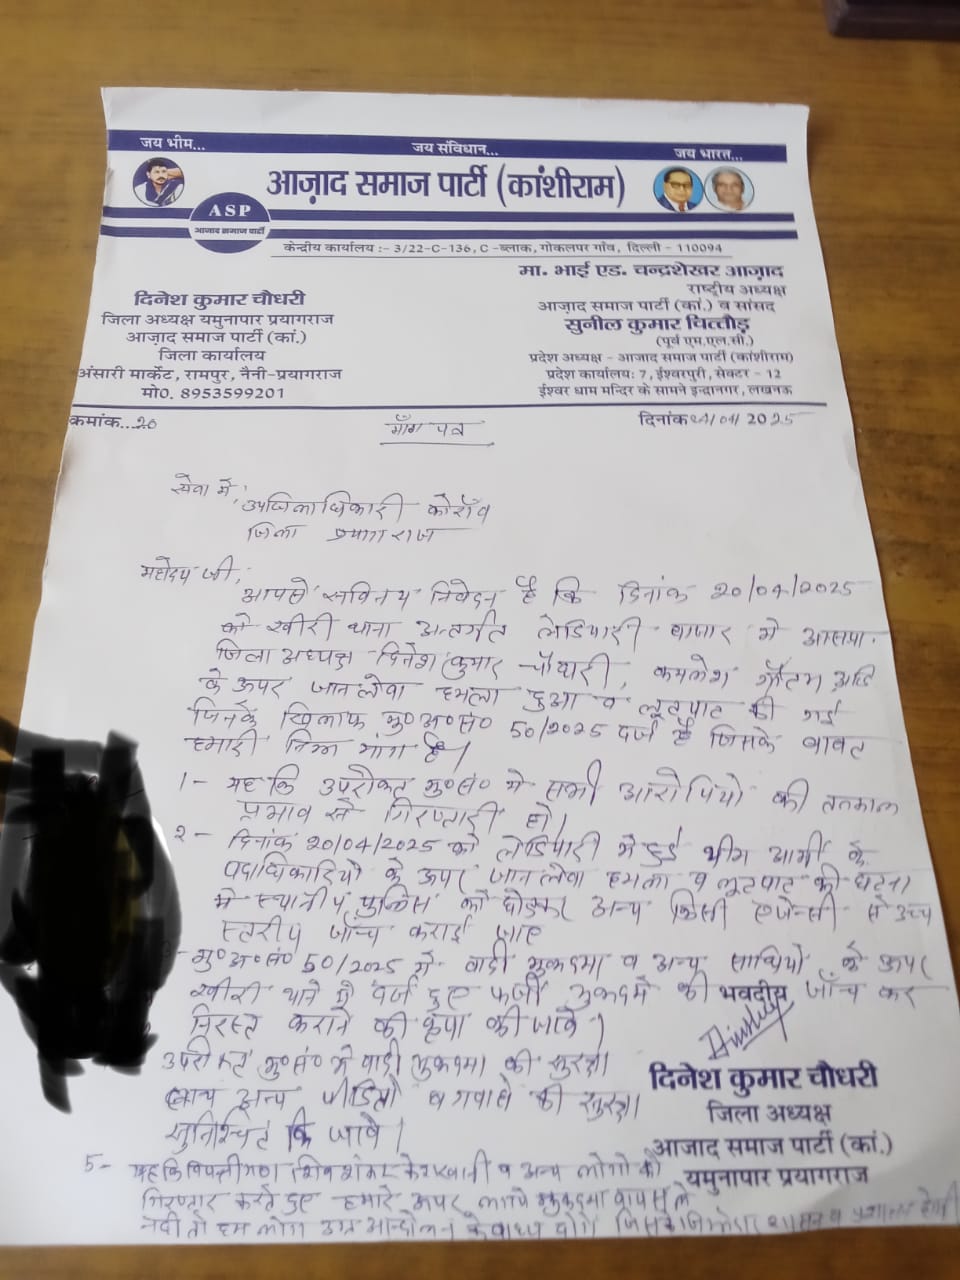 जय भीम...
जय संविधान...
जय भारत...
आज़ाद समाज पार्टी (कांशीराम)
ASP
आजाद समाज पार्टी
केन्द्रीय कार्यालय :- 3/22-C-136, C -ब्लाक, गोकलपर गाँव, दिल्ली - 110094
दिनेश कुमार चौधरी
जिला अध्यक्ष यमुनापार प्रयागराज
आज़ाद समाज पार्टी (कां.)
जिला कार्यालय
अंसारी मार्केट, रामपुर, नैनी-प्रयागराज
मो0. 8953599201
मा. भाई एड. चन्द्रशेखर आज़ाद
राष्ट्रीय अध्यक्ष
आज़ाद समाज पार्टी (कां.) व सांसद
सुनील कुमार चित्तौड़
(पूर्व एम.एल.सी.)
प्रदेश अध्यक्ष - आजाद समाज पार्टी (कांशीराम)
प्रदेश कार्यालय: 7, ईश्वरपुरी, सेक्टर - 12
ईश्वर धाम मन्दिर के सामने इन्द्रानगर, लखनऊ
कमांक...20
दिनांक 21/04/2025
माँग पत्र
सेवा में,
उपजिलाधिकारी कोराँव
जिला प्रयागराज
महोदय जी,
आपसे सविनय निवेदन है कि दिनांक 20/04/2025
को खीरी थाना अन्तर्गत लेडियारी बाजार में आसपा
जिला अध्यक्ष दिनेश कुमार चौधरी, कमलेश गौतम आदि
के ऊपर जानलेवा हमला हुआ व लूटपाट की गई
जिनके खिलाफ मु०अ०सं० 50/2025 दर्ज है जिसके बावत
हमारी निम्न मांग है।
1- यह कि उपरोक्त मु०सं० में सभी आरोपियो की तत्काल
प्रभाव से गिरफ्तारी हो।
2- दिनांक 20/04/2025 को लेडियारी में हुई भीम आर्मी के
पदाधिकारियो के ऊपर जानलेवा हमला व लूटपाट की घटना
में स्थानीय पुलिस को छोड़कर अन्य किसी एजेन्सी से उच्च
स्तरीय जाँच कराई जाए
मु०अ०सं० 50/2025 में वादी मुकदमा व अन्य साथियो के ऊपर
खीरी थाने में दर्ज हुए फर्जी मुकदमे की जाँच कर
निरस्त कराने की कृपा की जावे।
भवदीय
उपरोक्त मु०सं० में वादी मुकदमा की सुरक्षा
अन्य पीडितो व गवाहो की सुरक्षा
सुनिश्चित कि जावे।
दिनेश कुमार चौधरी
जिला अध्यक्ष
आजाद समाज पार्टी (कां.)
यमुनापार प्रयागराज
5- यह कि विपक्षीगण शिवशंकर केशरवानी व अन्य लोगो को
गिरफ्तार करते हुए हमारे ऊपर लगाये मुकदमा वापस ले
नही तो हम लोग उग्र आन्दोलन को बाध्य होंगे जिसके जिम्मेदार शासन व प्रशासन होगी